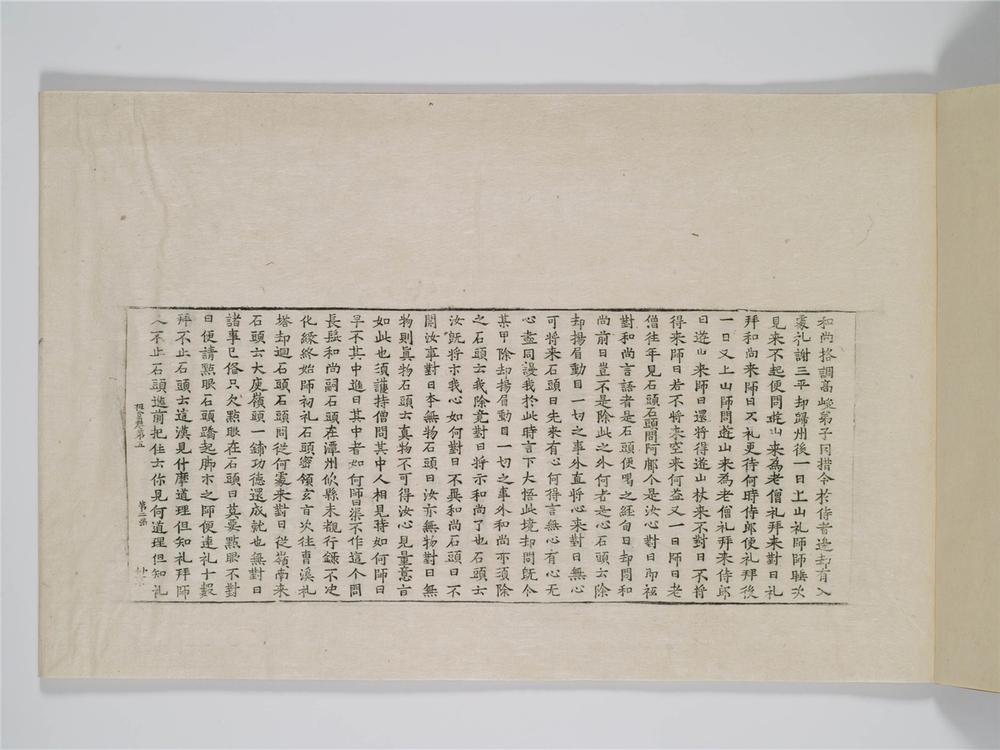 和尚格調高峻弟子因措令於侍者邊却有入
處礼謝三平却歸州後一日上山礼師師睡次
見来不起便問遊山来為老僧礼拜来對日礼
拜和尚来師日不礼更待何時侍郎便礼拜後
一日又上山師問遊山来為老僧礼拜来侍郎
日遊山来師日還将得遊山杖来不對日不将
得来師日若不将来空来何益又一日師日老
僧往年見石頭石頭問阿郍个是汝心對日即秖
對和尚言語者是石頭便喝之経旬日却問和
尚前日豈不是除此之外何者是心石頭云除
却揚眉動目一切之事外直将心来對日無心
可将来石頭日先来有心何得言無心有心无
心盡同謾我於此時言下大悟此境却問既令
某甲除却揚眉動目一切之事外和尚亦須除
之石頭云我除竟對日将示和尚了也石頭云
汝既将示我心如何對日不異和尚石頭日不
關汝事對日本無物石頭日汝亦無物對日無
物則真物石頭云真物不可得汝心見量意旨
如此也須護持僧問其中人相見時如何師日
早不其中進日其中者如何師日渠不作這个問
長髭和尚嗣石頭在潭州攸縣未覩行録不决
化緣終始師初礼石頭密領玄旨次往曹溪礼
塔却迴石頭石頭問從何處来對日從嶺南来
石頭云大庾嶺頭一鋪功德還成就也無對日
諸事已俻只欠點眼在石頭日莫要點眼不對
日便請點眼石頭蹺起脚示之師便連礼十數
拜不止石頭云這漢見什摩道理但知礼拜師
又不止石頭進前把住云你見何道理但知礼
祖堂集第五 第二張